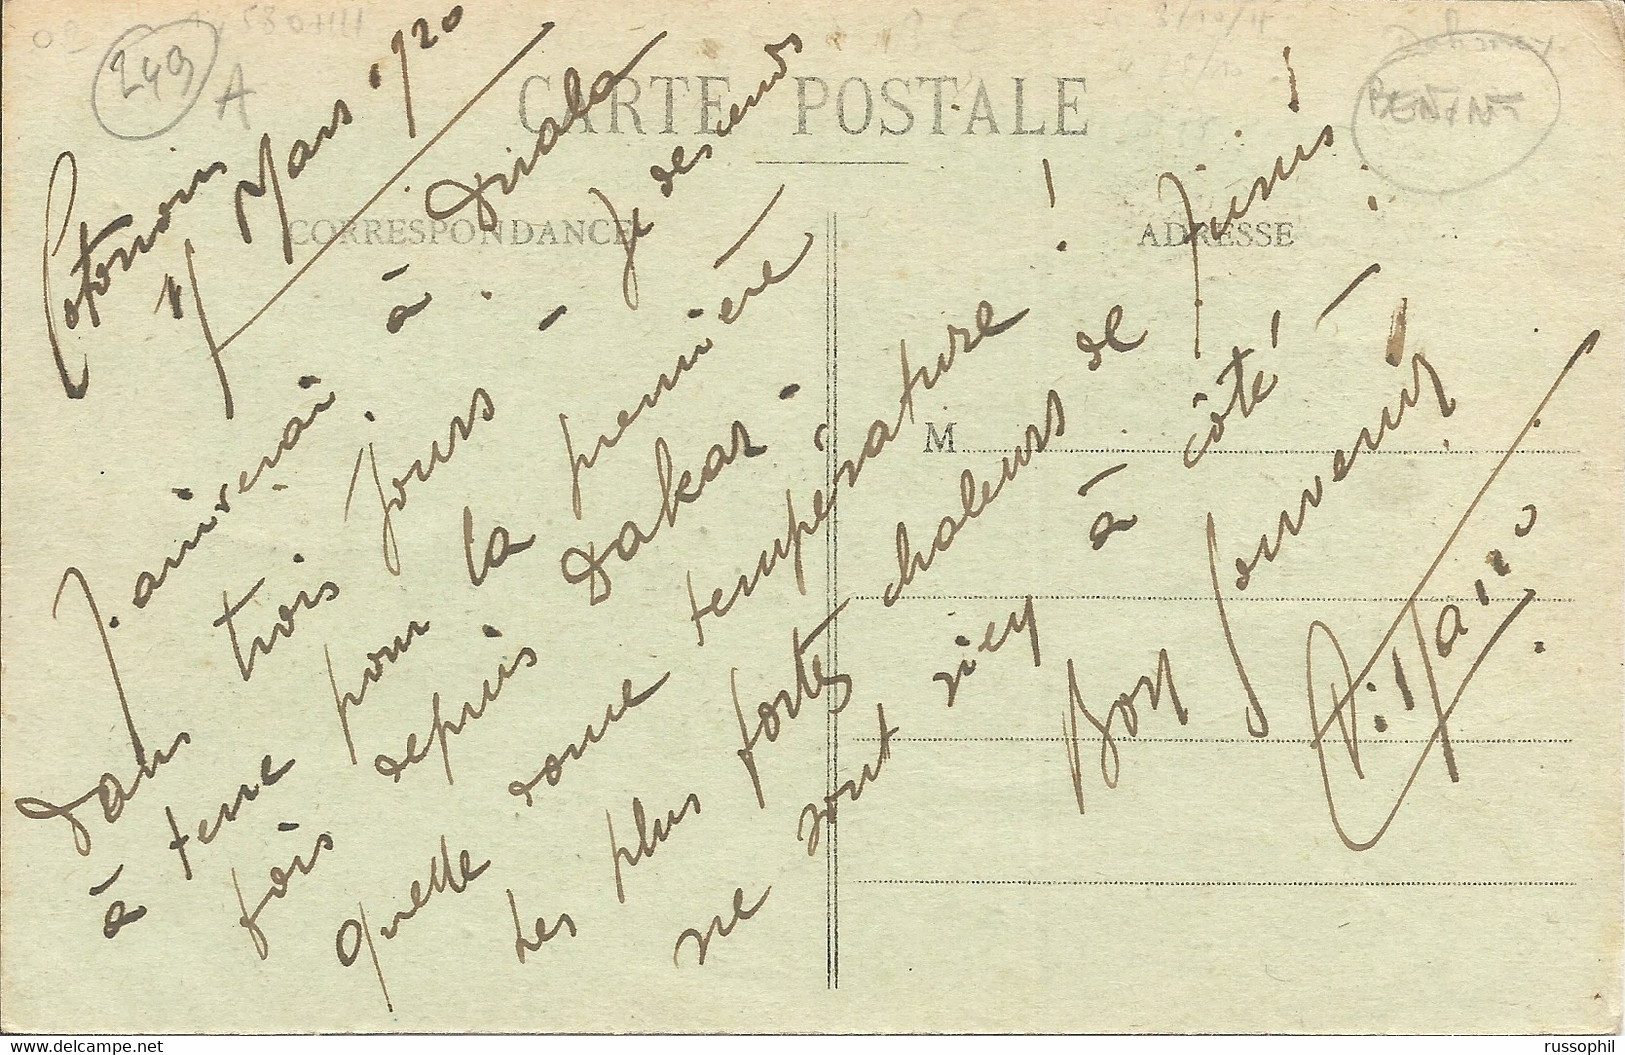 249
A
Dahomey
BENIN
CARTE POSTALE
CORRESPONDANCE
ADRESSE
M
Cotonou
4 Mars 1920
J'arriverai à Duala
dans trois jours - Je descends
à terre pour la première
fois depuis Dakar -
quelle douce température !
Les plus fortes chaleurs de Tunis !
ne sont rien à côté !
Bon souvenir
https://www.delcampe.net
russophil